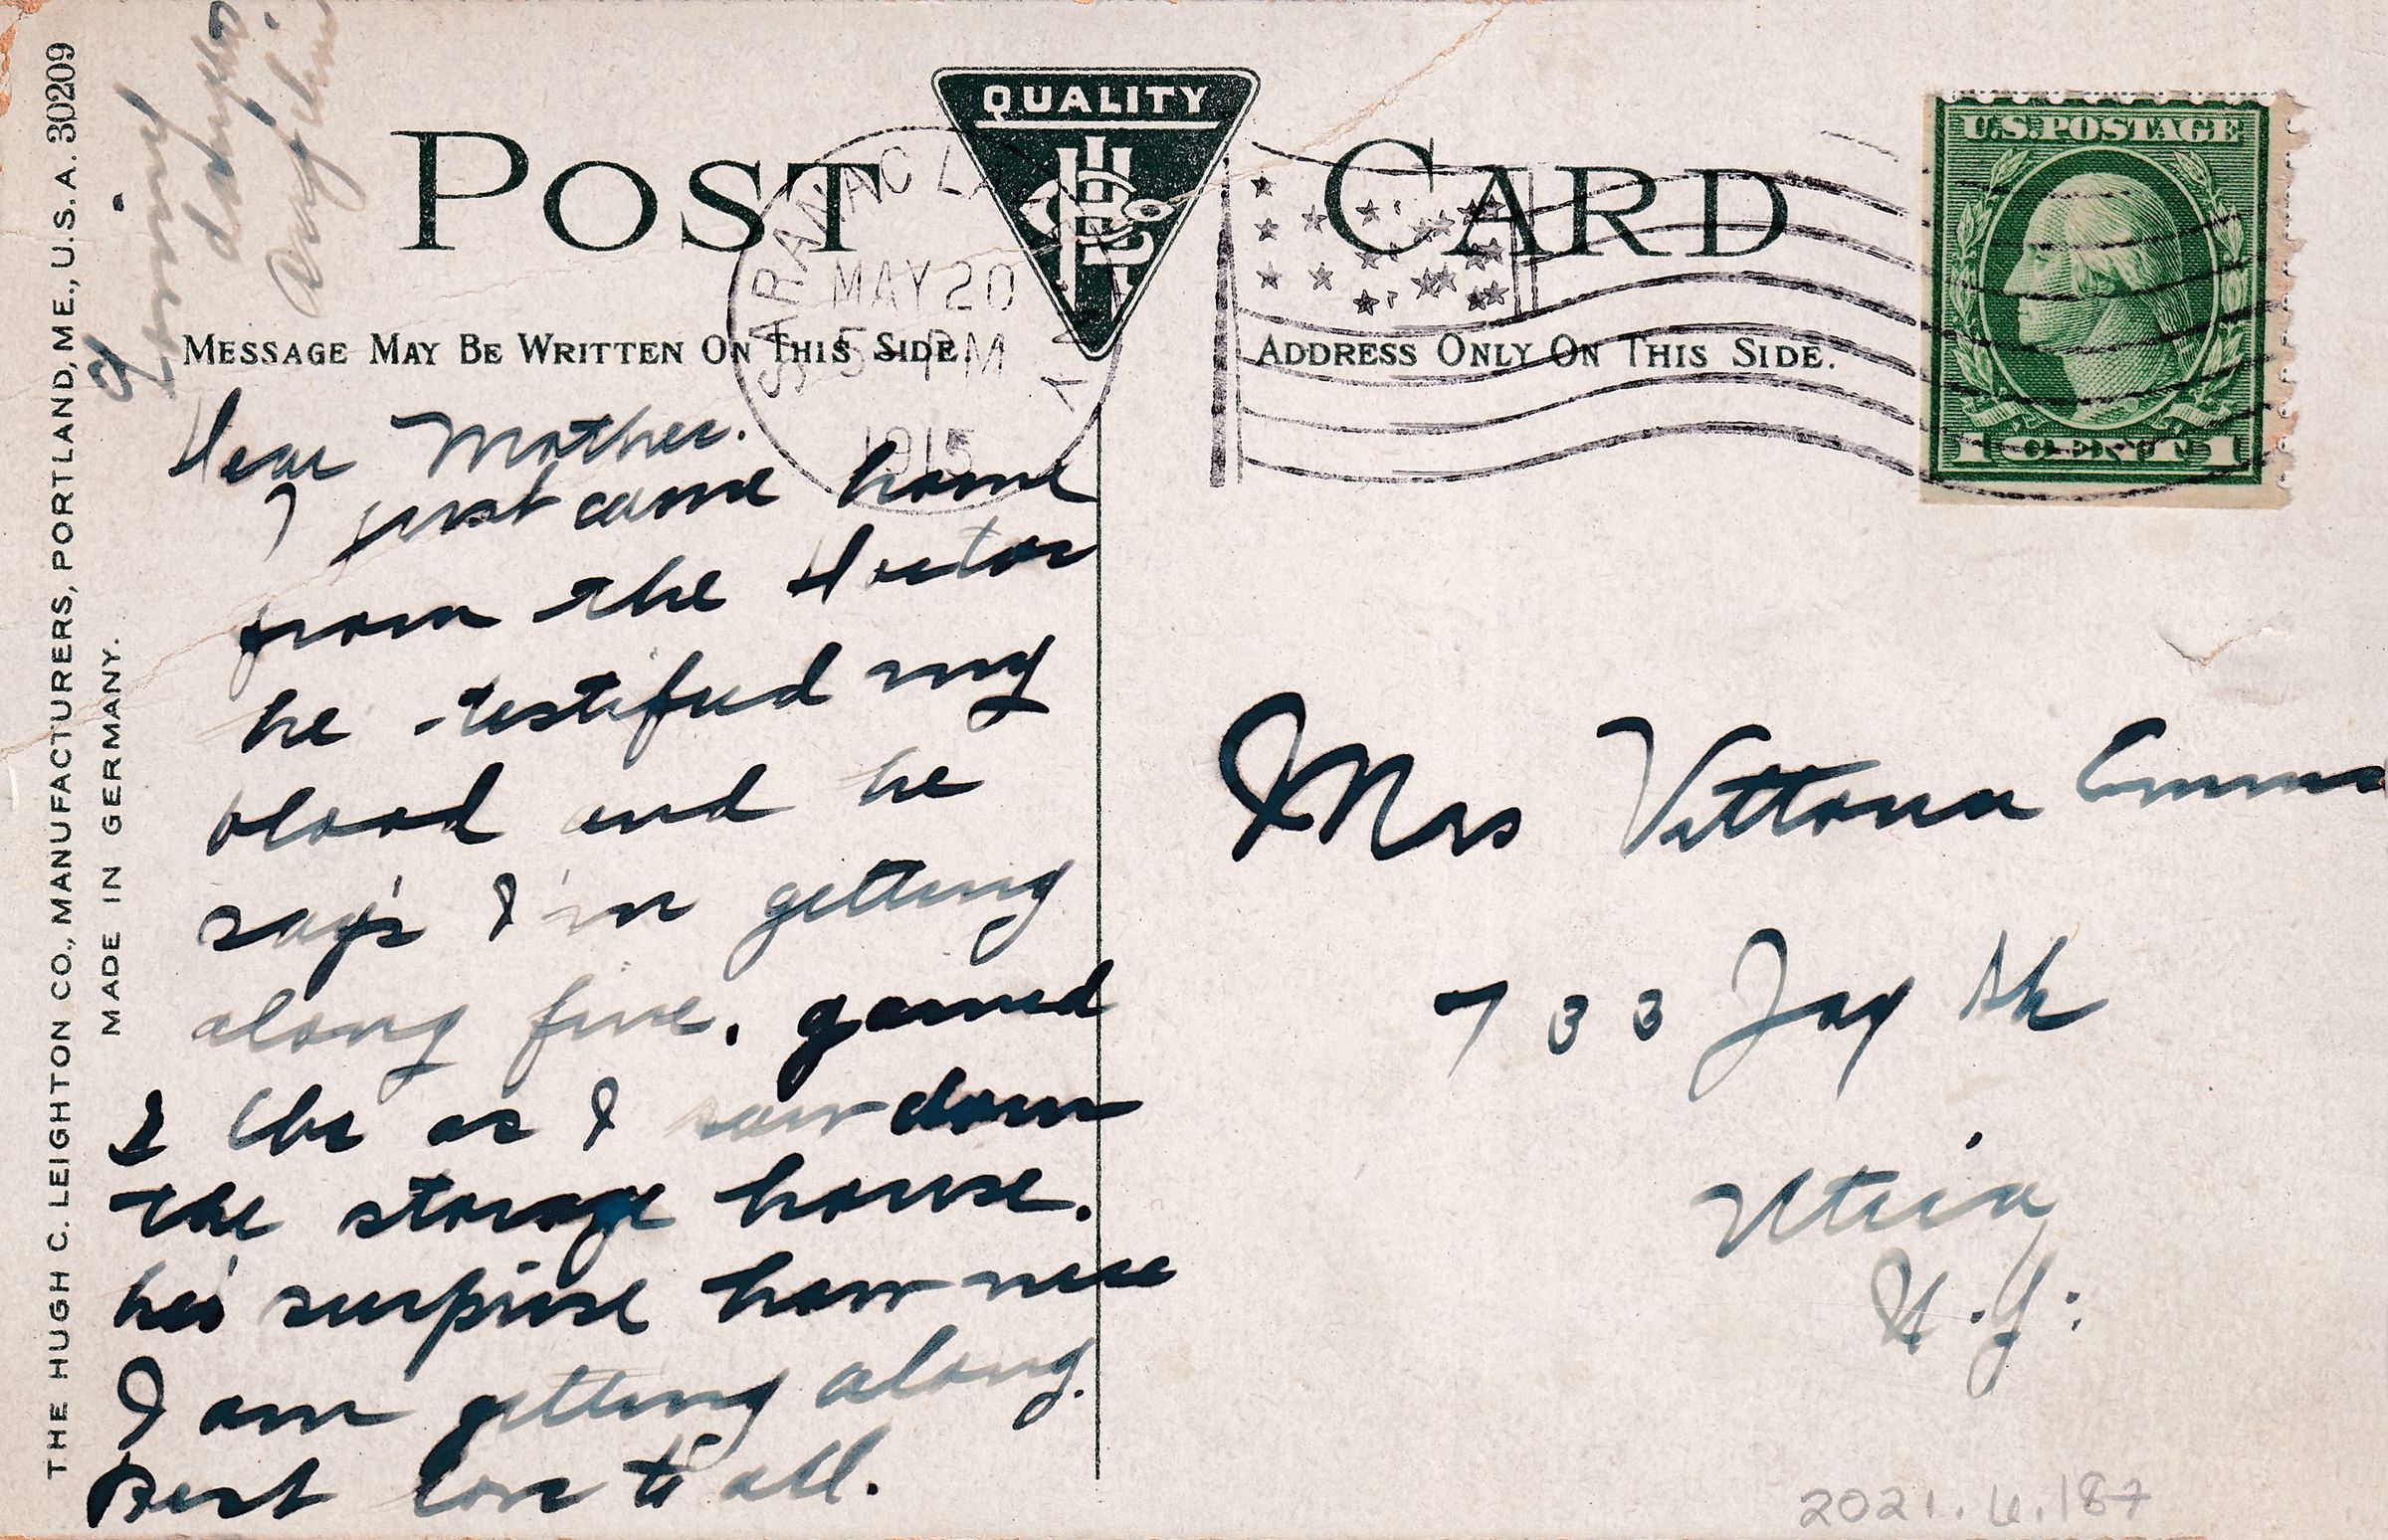 POST CARD
QUALITY
SARANAC LA
MAY 20
5 - PM
1915
N.Y.
U.S. POSTAGE
1 CENT 1
MESSAGE MAY BE WRITTEN ON THIS SIDE.
ADDRESS ONLY ON THIS SIDE.
THE HUGH C. LEIGHTON CO., MANUFACTURERS, PORTLAND, ME., U.S.A. 30209
MADE IN GERMANY.
Dear Mother.
I just came home
from the Doctor
he testified my
blood and he
say's I'm getting
along fine. gained
2 lbs as I saw down
the storage house.
he's surprise how nice
I am getting along.
Best love to all.
Mrs Vittoria
733 Jay St
Utica
N.Y.
2021.4.187